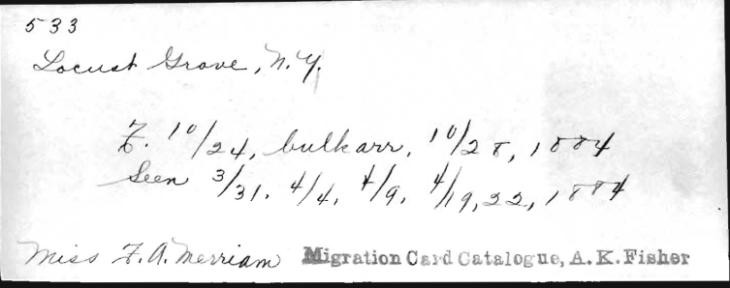 533
Locust Grove, N.Y.
F. 10/24, bulk arr, 10/28, 1884
Seen 3/31. 4/4, 4/9. 4/19, 22, 1884
Miss F. A. Merriam Migration Card Catalogue, A. K. Fisher